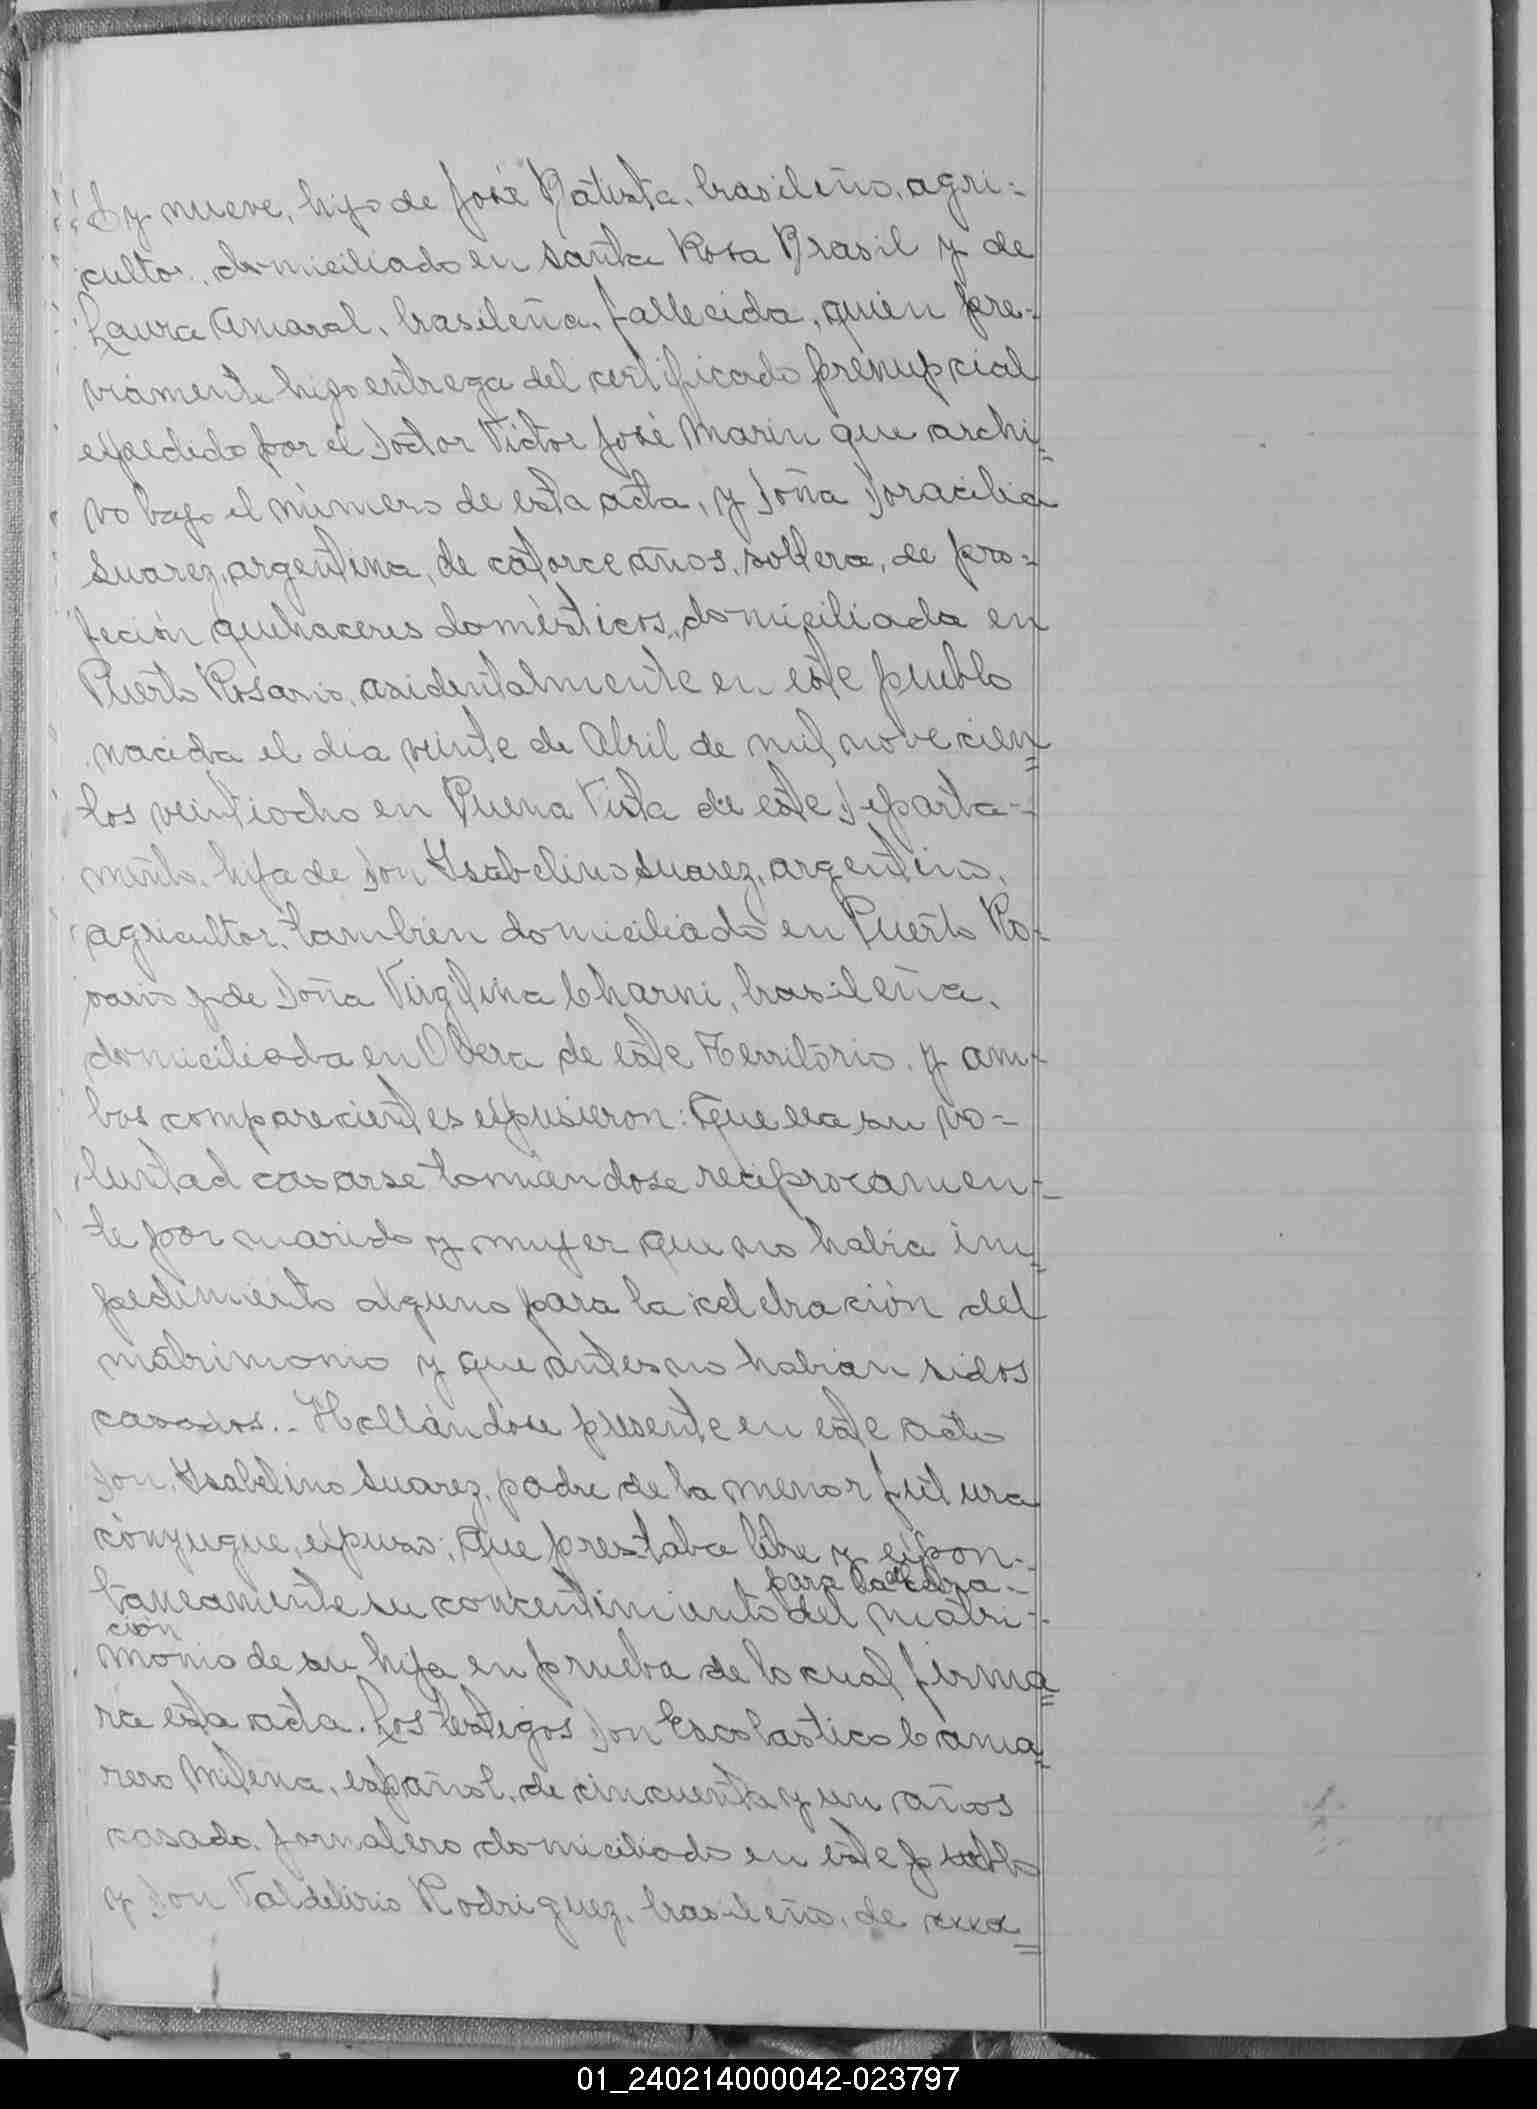 y nueve, hijo de José Batista, brasileño, agri=
cultor, domiciliado en Santa Rosa Brasil y de
Laura Amaral, brasileña, fallecida, quien pre-
viamente hizo entrega del certificado prenupcial
espedido por el Doctor Victor José Marin que archi=
vo bajo el número de esta acta, y Doña Doracilia
Suarez, argentina, de catorce años, soltera, de pro=
feción quehaceres domésticos, domiciliada en
Puerto Rosario, asidentalmente en este pueblo
nacida el dia veinte de Abril de mil novecien=
tos veintiocho en Buena Vista de este Departa-
mento, hija de Don Ysabelino Suarez, argentino,
agricultor, tambien domiciliado en Puerto Ro-
sario y de Doña Virgilina Charni, brasileña,
domiciliada en Obera de este Territorio, y am-
bos comparecientes espusieron: Que era su vo-
luntad casarse tomandose reciprocamen-
te por marido y mujer que no habia im=
pedimento alguno para la celebracion del
matrimonio y que antes no habian sidos
casados.- Hallándose presente en este acto
Don Ysabelino Suarez, padre de la menor futura
cónyugue, espuso: Que prestaba libre y espon-
para la celebra-
taneamente su concentimiento del matri-
ción
monio de su hija en prueba de lo cual firma=
rá esta acta. Los testigos Don Escolastico Cama=
rero Milena, español, de cincuenta y un años
casado, jornalero domiciliado en este pueblo
y Don Valdelirio Rodriguez, brasileño, de